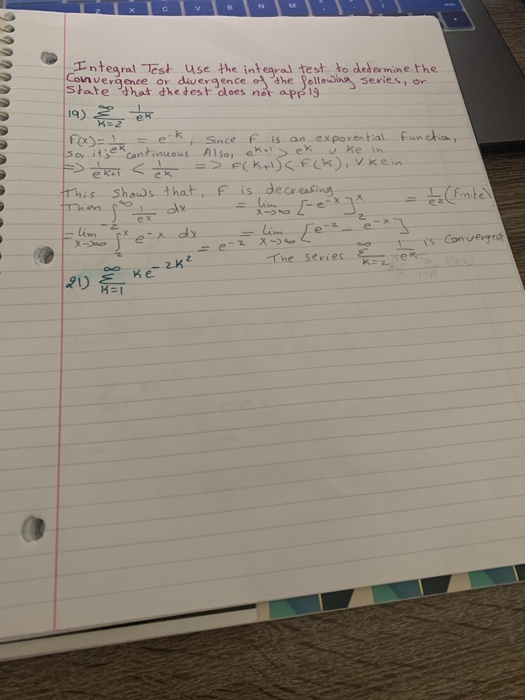 X C V B N M
Integral Test Use the integral test to determine the
Convergence or divergence of the following series, or
State that the test does not apply
19) ∞ Σ K=2 1/e^K
F(x) = 1/e^K = e^-K, Since F is an exponential function,
So, it's continuous. Also, e^K+1 > e^K ∀ K e in
=> 1/e^K+1 < 1/e^K => F(K+1) < F(K), ∀ K e in
This shows that, F is decreasing
Then ∫_2^∞ 1/e^x dx = lim x->∞ [-e^-x]_2^x = 1/e^2 (finite)
= lim x->∞ ∫_2^x e^-x dx = lim x->∞ [e^-2 - e^-x]
= e^-2 The series ∞ Σ K=2 1/e^K is Convergent
21) ∞ Σ K=1 Ke^-2K^2